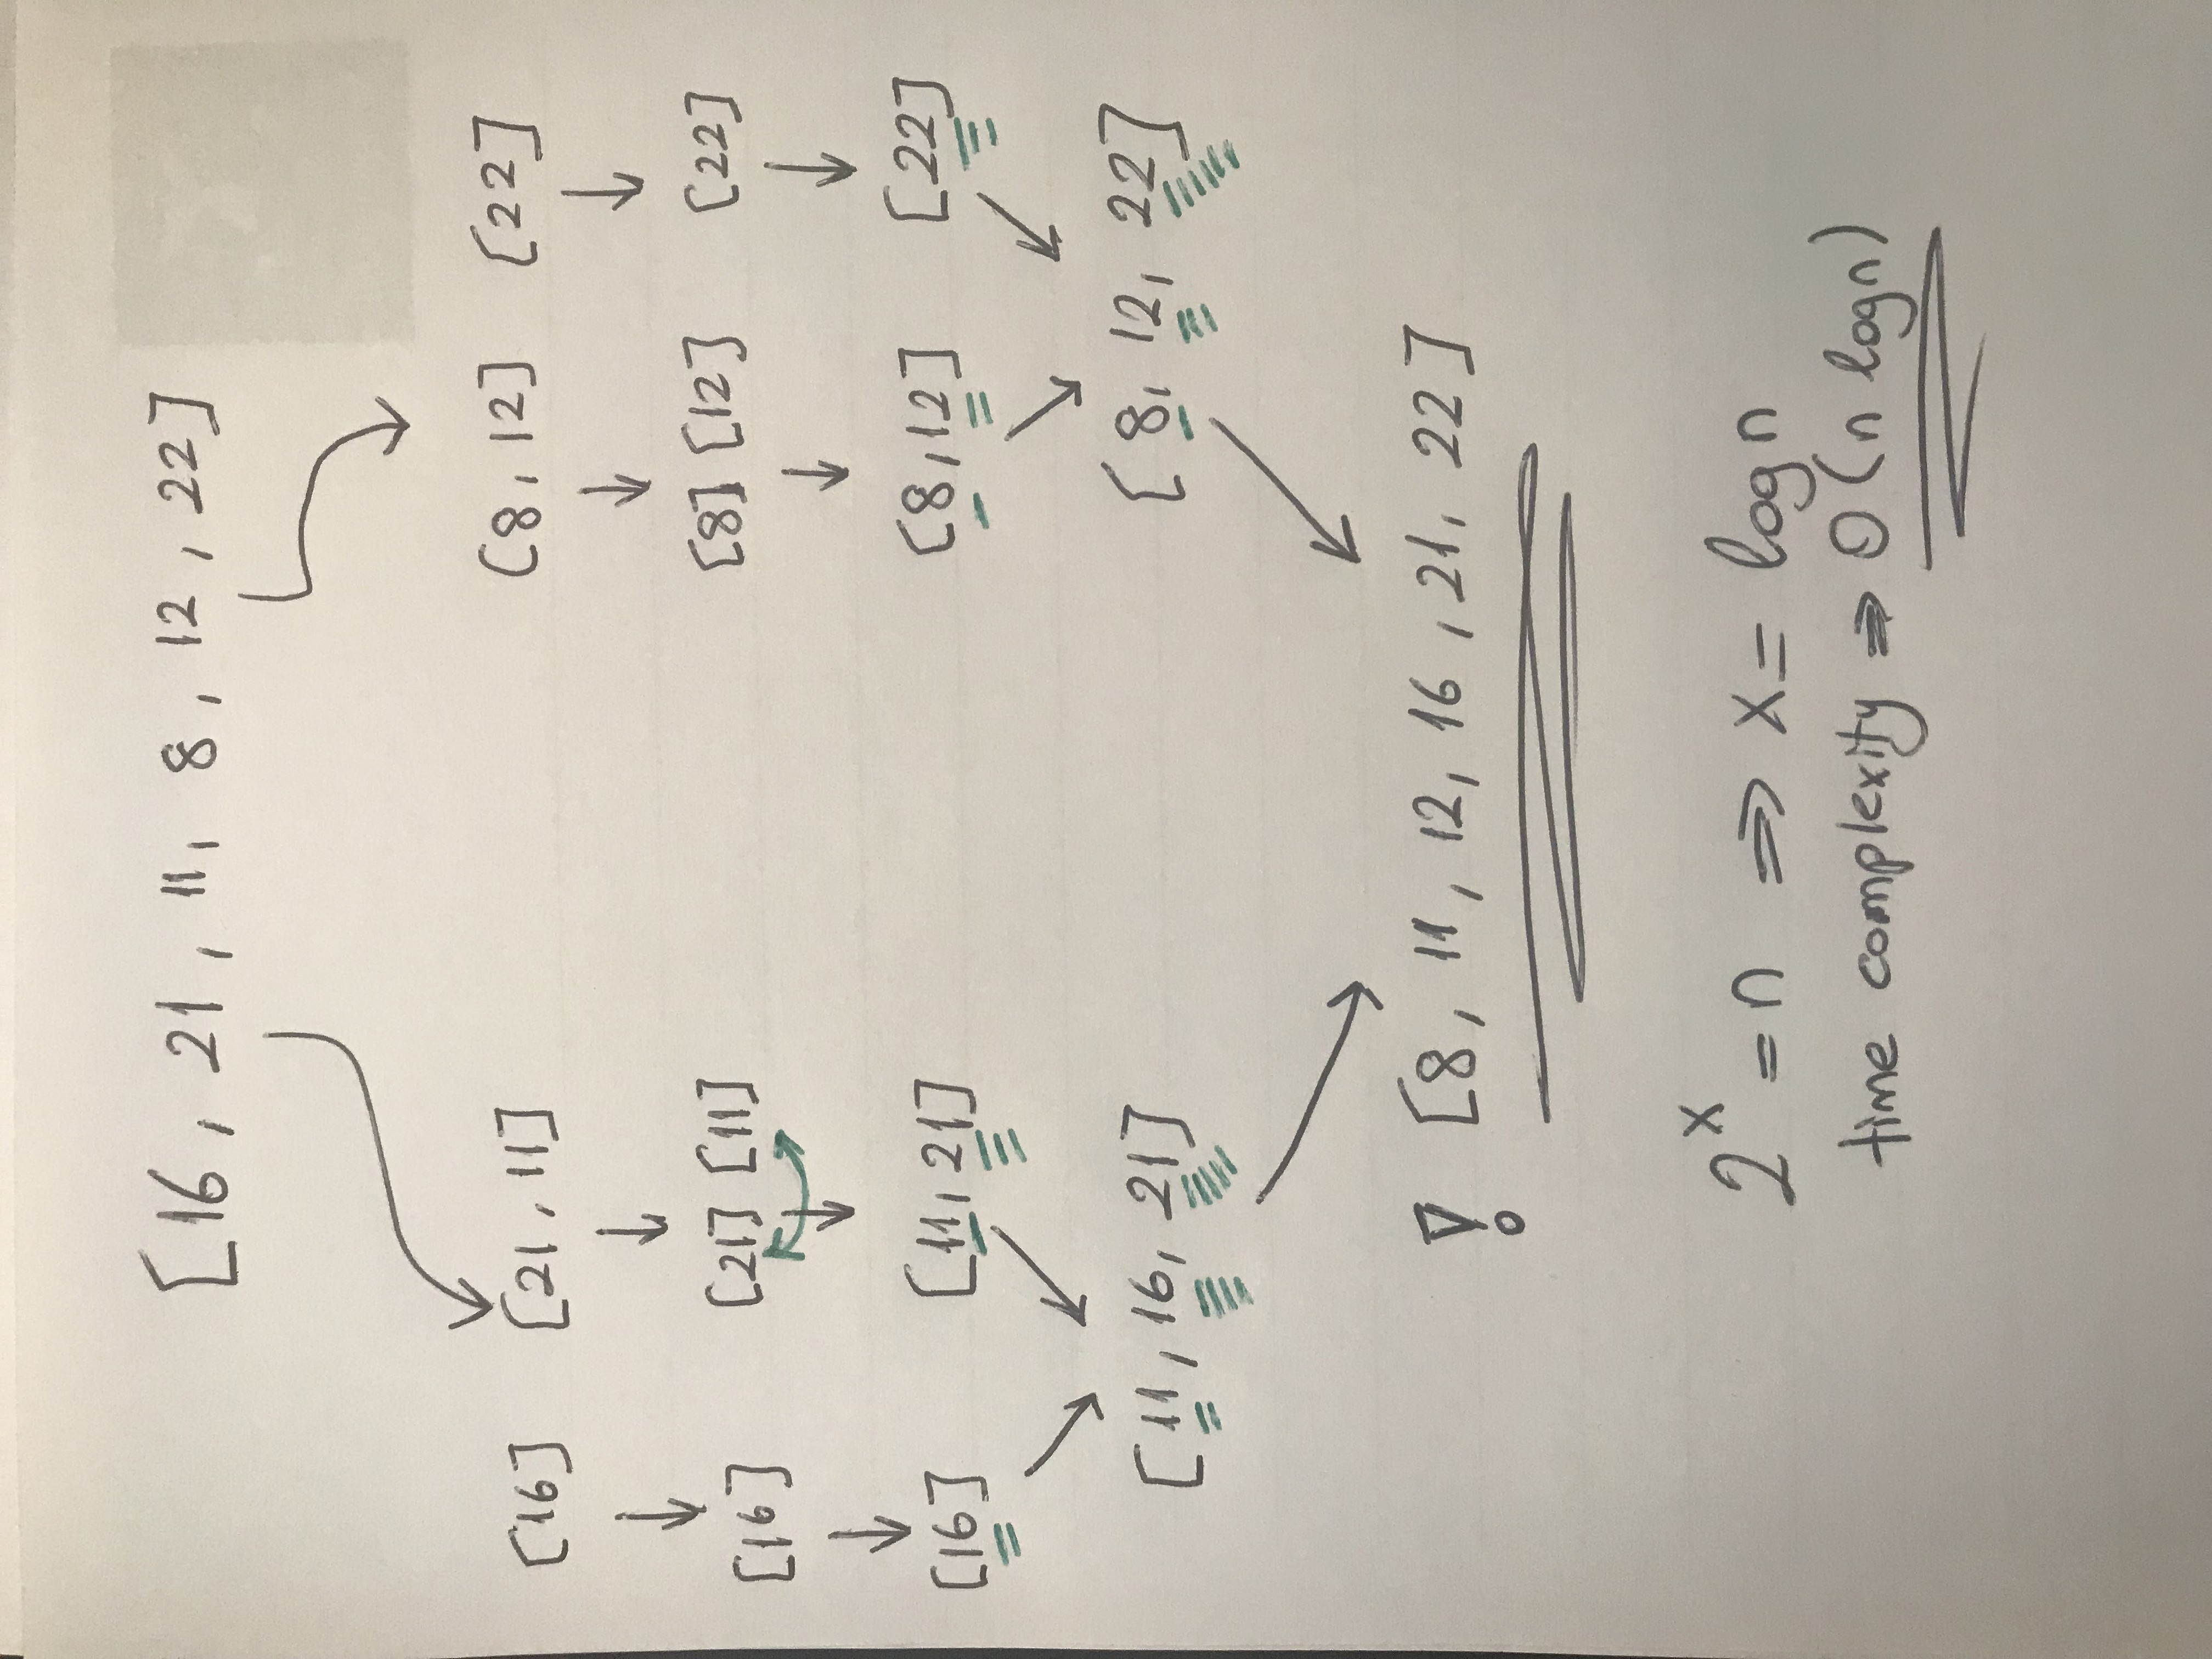 [16, 21, 11, 8, 12, 22]
[16] [21, 11] [8, 12] [22]
[16] [21] [11] [8] [12] [22]
[16] [11, 21] [8, 12] [22]
[11, 16, 21] [8, 12, 22]
! [8, 11, 12, 16, 21, 22]
2^x = n ⇒ x = log n
time complexity ⇒ O(n logn)